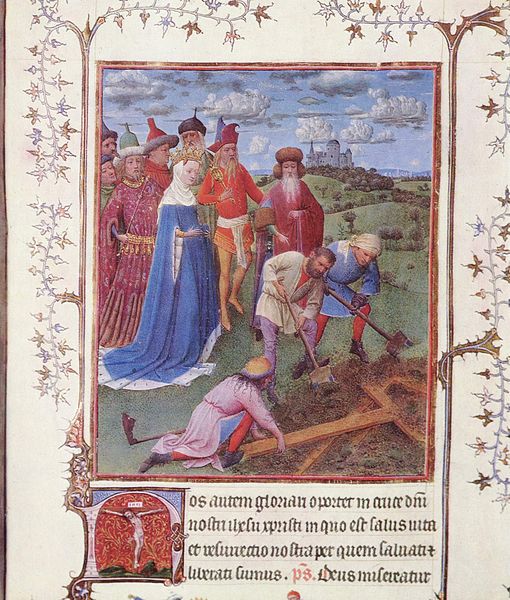 Nos autem gloriari oportet in cruce dñi
nostri ihesu xpristi in quo est salus uita
et resurectio nostra per quem saluati ⁊
liberati sumus. ps. Deus misereatur